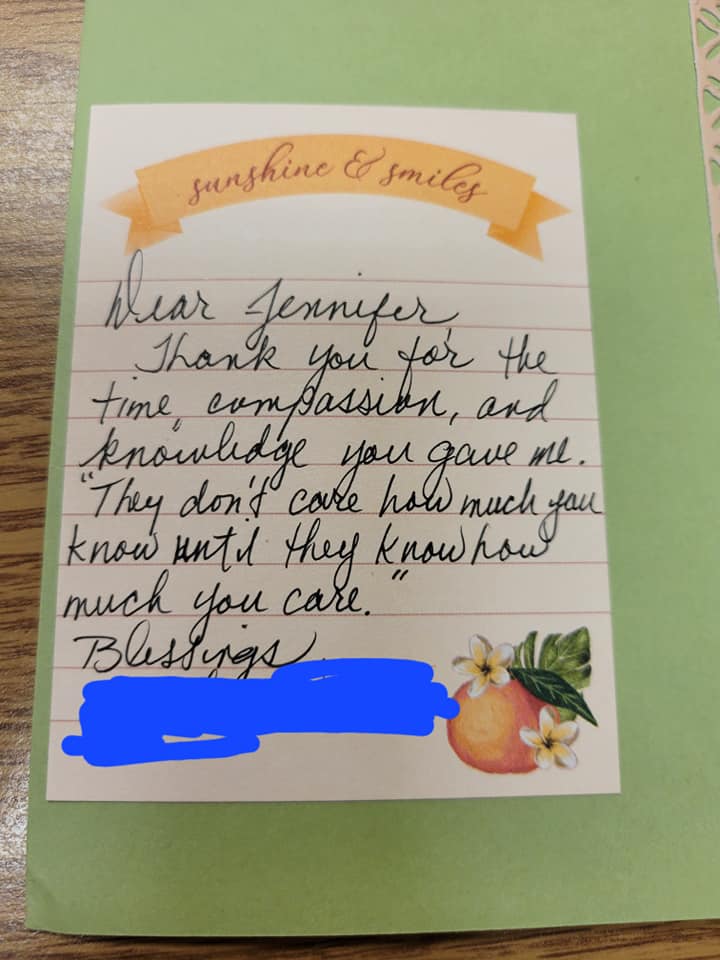 sunshine & smiles
Dear Jennifer,
Thank you for the
time, compassion, and
knowledge you gave me.
"They don't care how much you
know until they know how
much you care."
Blessings